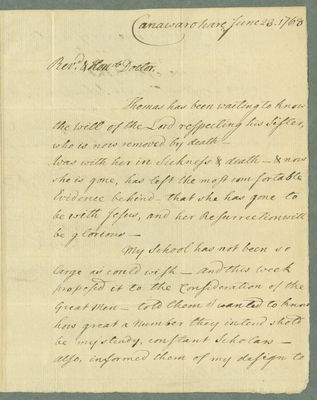 Canawarohare June 23. 1768
Revd. & Honrd. Doctor.
Thomas has been waiting to know
the will of the Lord respecting his Sister,
who is now removed by death —
was with her in Sickness & death — & now
she is gone, has left the most comfortable
Evidence behind — that she has gone to
be with Jesus, and her Resurrection will
be glorious —
My School has not been so
large as could wish — and this week
proposed it to the Consideration of the
Great Men — told them I wanted to know
how great a Number they intend should
be my steady, constant Scholars —
also, informed them of my design to